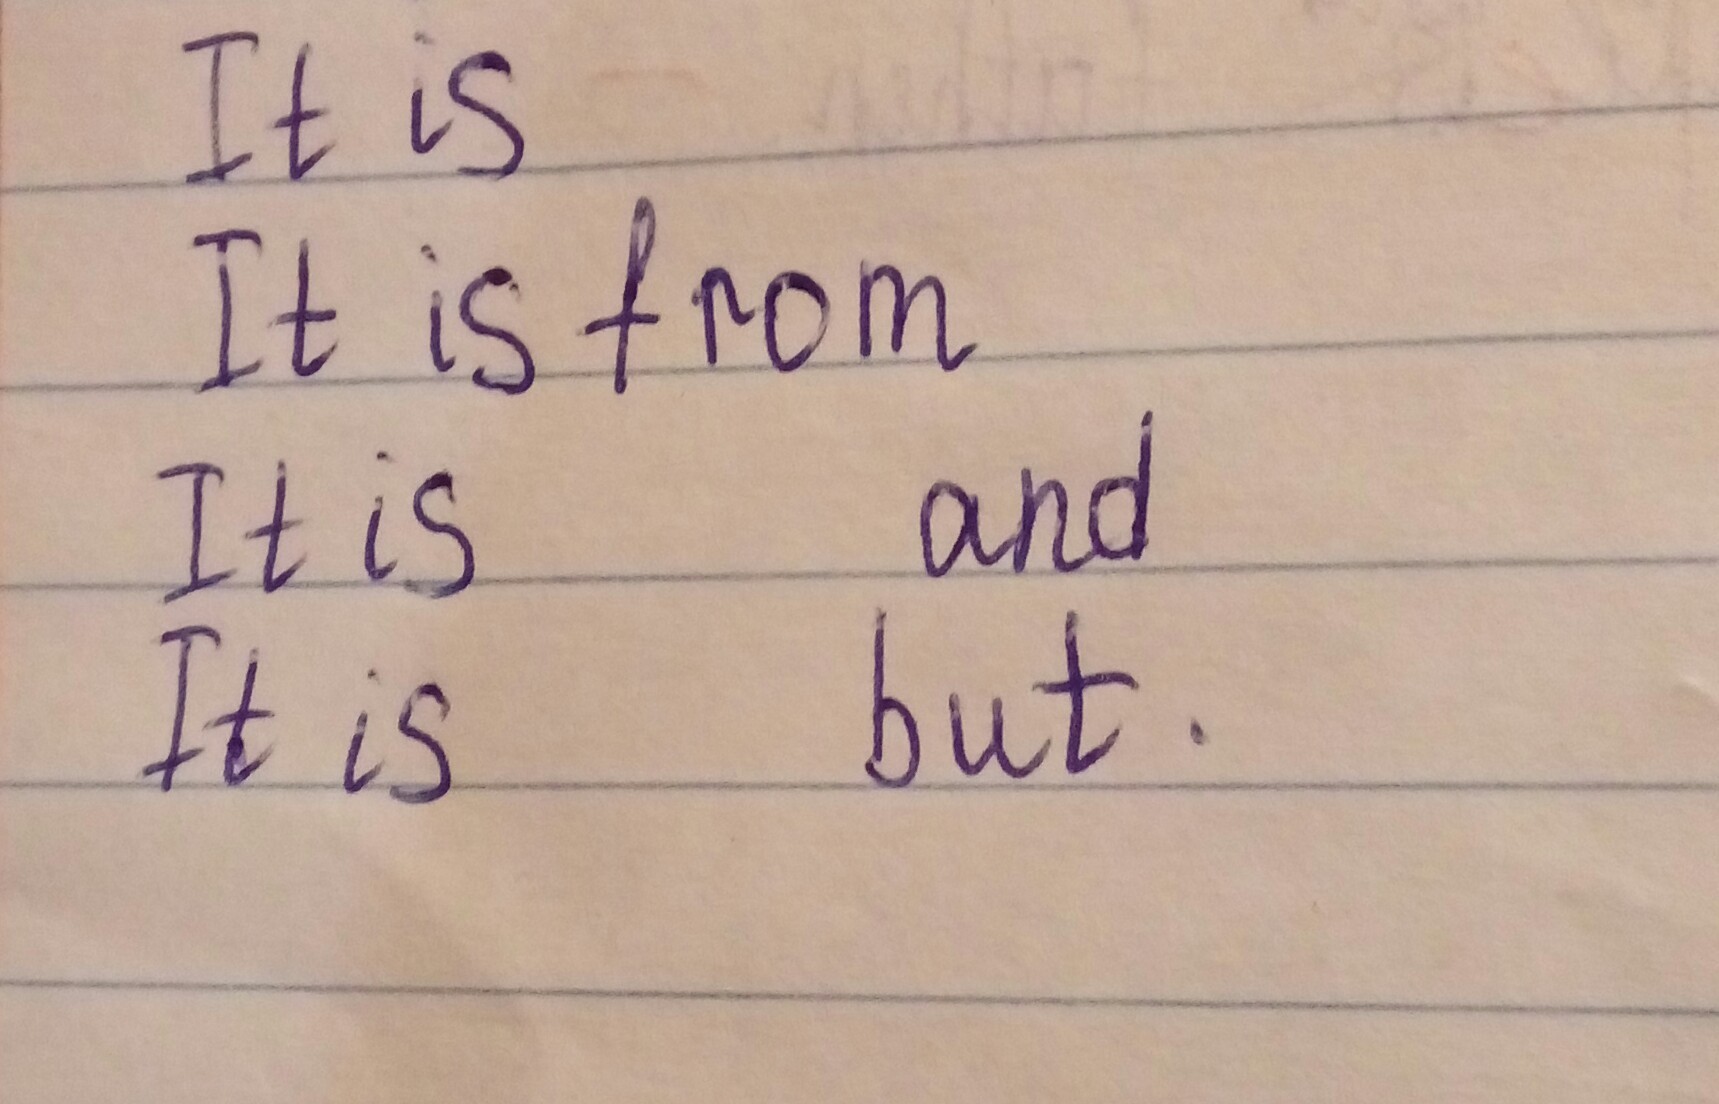 It is
It is from
It is and
It is but.